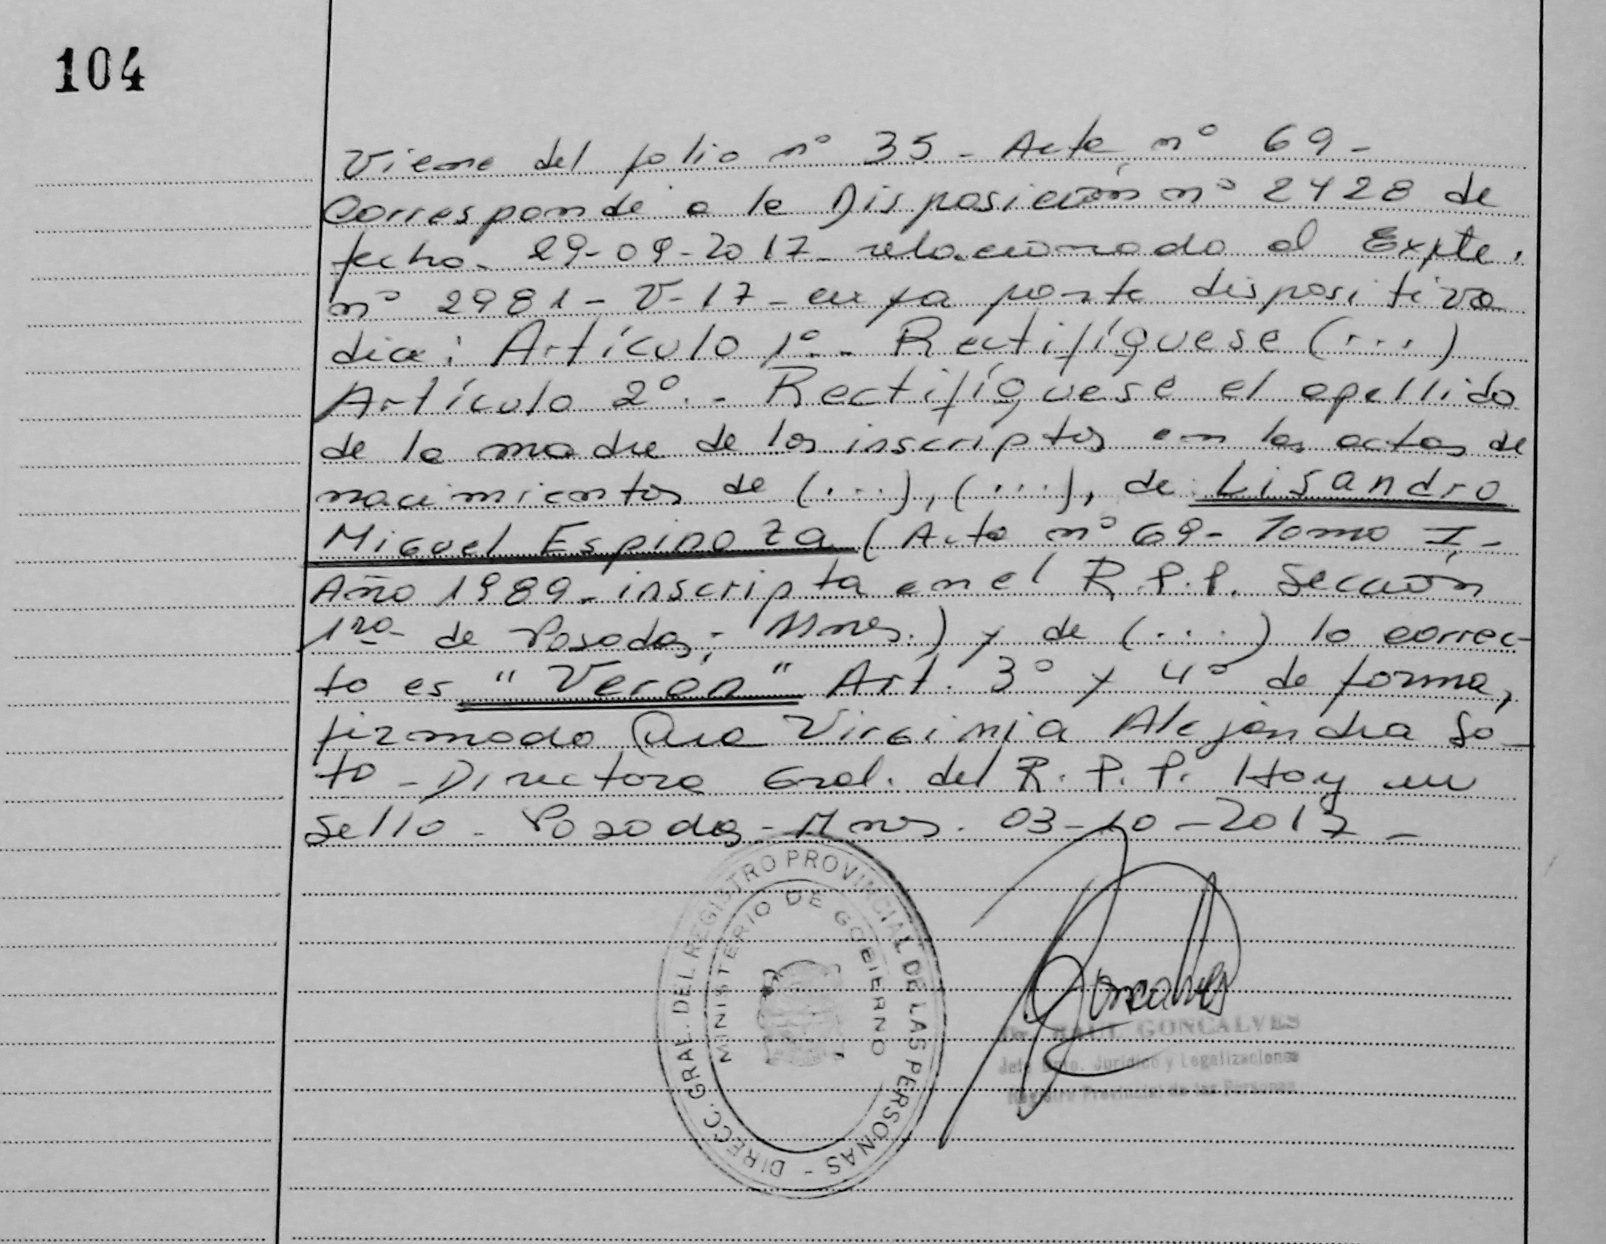 104
Viene del folio nº 35 - Acta nº 69 -
Corresponde a la Disposición nº 2428 de
fecha 29-09-2017 relacionado al Expte.
nº 2981 - V-17 - cuya parte dispositiva
dice: Artículo 1º.- Rectifíquese (...)
Artículo 2º.- Rectifíquese el apellido
de la madre de los inscriptos en las actas de
nacimientos de (...), (...), de Lisandro
Miguel Espinoza (Acta nº 69 - Tomo I -
Año 1989 - inscripta en el R.P.P. Sección
1ra de Posadas; Mnes.) y de (...) lo correc-
to es "Verón" Art. 3º y 4º de forma,
firmado Virginia Alejandra So-
to - Directora Gral. del R.P.P. Hay un
sello - Posadas - Mnes. 03-10-2017 -
DIRECC. GRAL. DEL REGISTRO PROVINCIAL DE LAS PERSONAS -
MINISTERIO DE GOBIERNO
Goncalves
Dr. RAUL GONCALVES
Jefe Dpto. Jurídico y Legalizaciones
Registro Provincial de las Personas